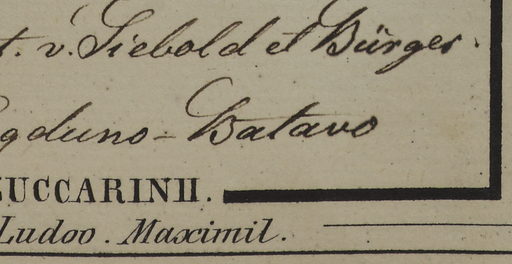 t. v. Siebold et Bürger.
gduno-Batavo
ZUCCARINII.
Ludov. Maximil.